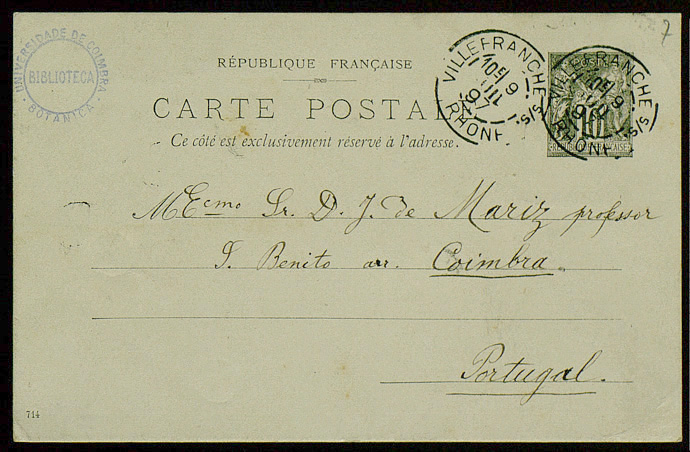 UNIVERSIDADE DE COIMBRA
BIBLIOTECA
BOTANICA
7
RÉPUBLIQUE FRANÇAISE
CARTE POSTALE
Ce côté est exclusivement réservé à l'adresse.
VILLEFRANCHE S/S
RHONE
VILLEFRANCHE S/S
RHONE
10
M Ecmo Sr. D. J. de Mariz professor
S. Benito arr. Coimbra.
Portugal.
714